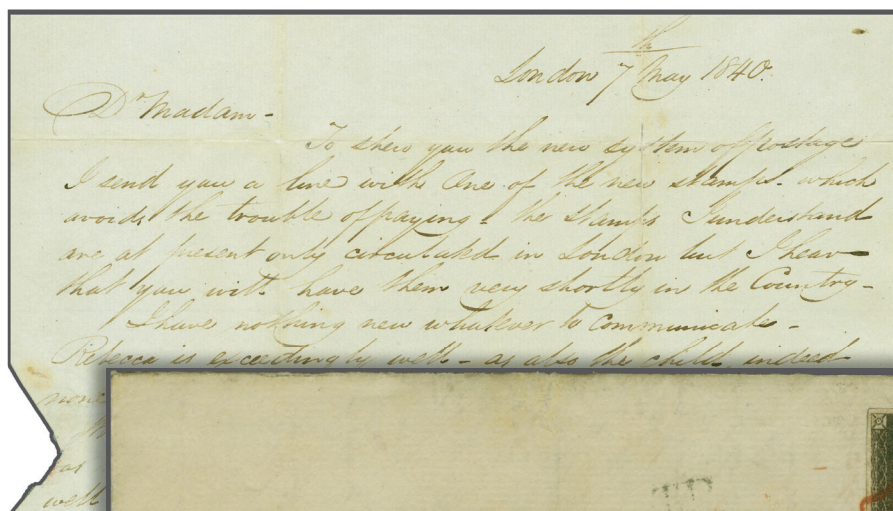 London 7th May 1840.
Dr Madam -
To shew you the new system of postage
I send you a line with One of the new stamps - which
avoids the trouble of paying - the stamps I understand
are at present only circulated in London but I hear
that you will have them very shortly in the Country -
I have nothing new whatever to communicate -
Rebecca is exceedingly well - as also the child, indeed
none
well